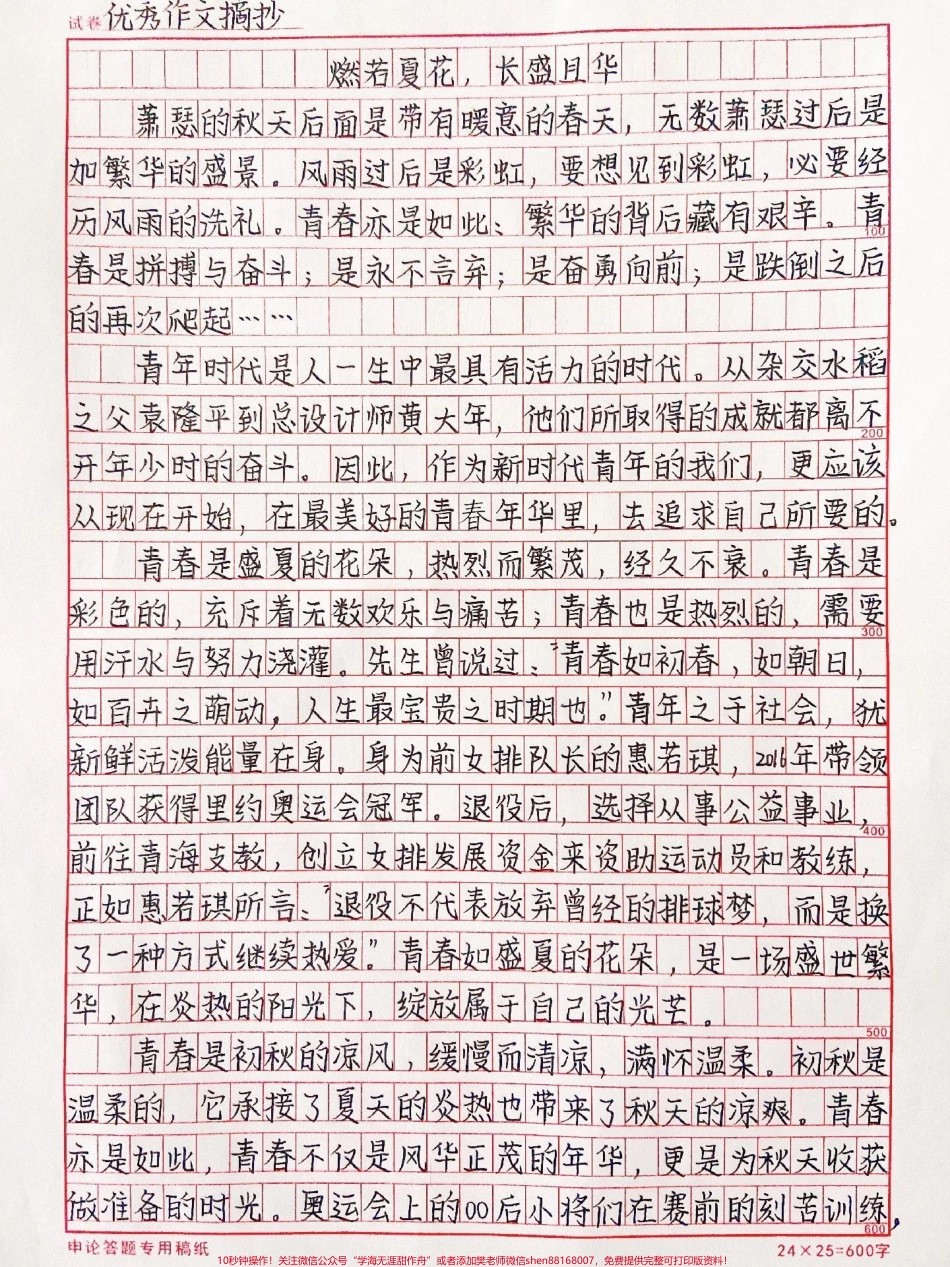 试卷 优秀作文摘抄
燃若夏花，长盛且华
萧瑟的秋天后面是带有暖意的春天，无数萧瑟过后是
加繁华的盛景。风雨过后是彩虹，要想见到彩虹，必要经
历风雨的洗礼。青春亦是如此：繁华的背后藏有艰辛。青
100
春是拼搏与奋斗；是永不言弃；是奋勇向前；是跌倒之后
的再次爬起……
青年时代是人一生中最具有活力的时代。从杂交水稻
之父袁隆平到总设计师黄大年，他们所取得的成就都离不
200
开年少时的奋斗。因此，作为新时代青年的我们，更应该
从现在开始，在最美好的青春年华里，去追求自己所要的。
青春是盛夏的花朵，热烈而繁茂，经久不衰。青春是
彩色的，充斥着无数欢乐与痛苦；青春也是热烈的，需要
300
用汗水与努力浇灌。先生曾说过：“青春如初春，如朝日，
如百卉之萌动，人生最宝贵之时期也”。青年之于社会，犹
新鲜活泼能量在身。身为前女排队长的惠若琪，2016年带领
团队获得里约奥运会冠军。退役后，选择从事公益事业，
400
前往青海支教，创立女排发展资金来资助运动员和教练，
正如惠若琪所言：“退役不代表放弃曾经的排球梦，而是换
了一种方式继续热爱”。青春如盛夏的花朵，是一场盛世繁
华，在炎热的阳光下，绽放属于自己的光芒。
500
青春是初秋的凉风，缓慢而清凉，满怀温柔。初秋是
温柔的，它承接了夏天的炎热也带来了秋天的凉爽。青春
亦是如此，青春不仅是风华正茂的年华，更是为秋天收获
做准备的时光。奥运会上的00后小将们在赛前的刻苦训练，
600
申论答题专用稿纸 24×25=600字
10秒钟操作！关注微信公众号“学海无涯甜作舟”或者添加樊老师微信shen88168007，免费提供完整可打印版资料！